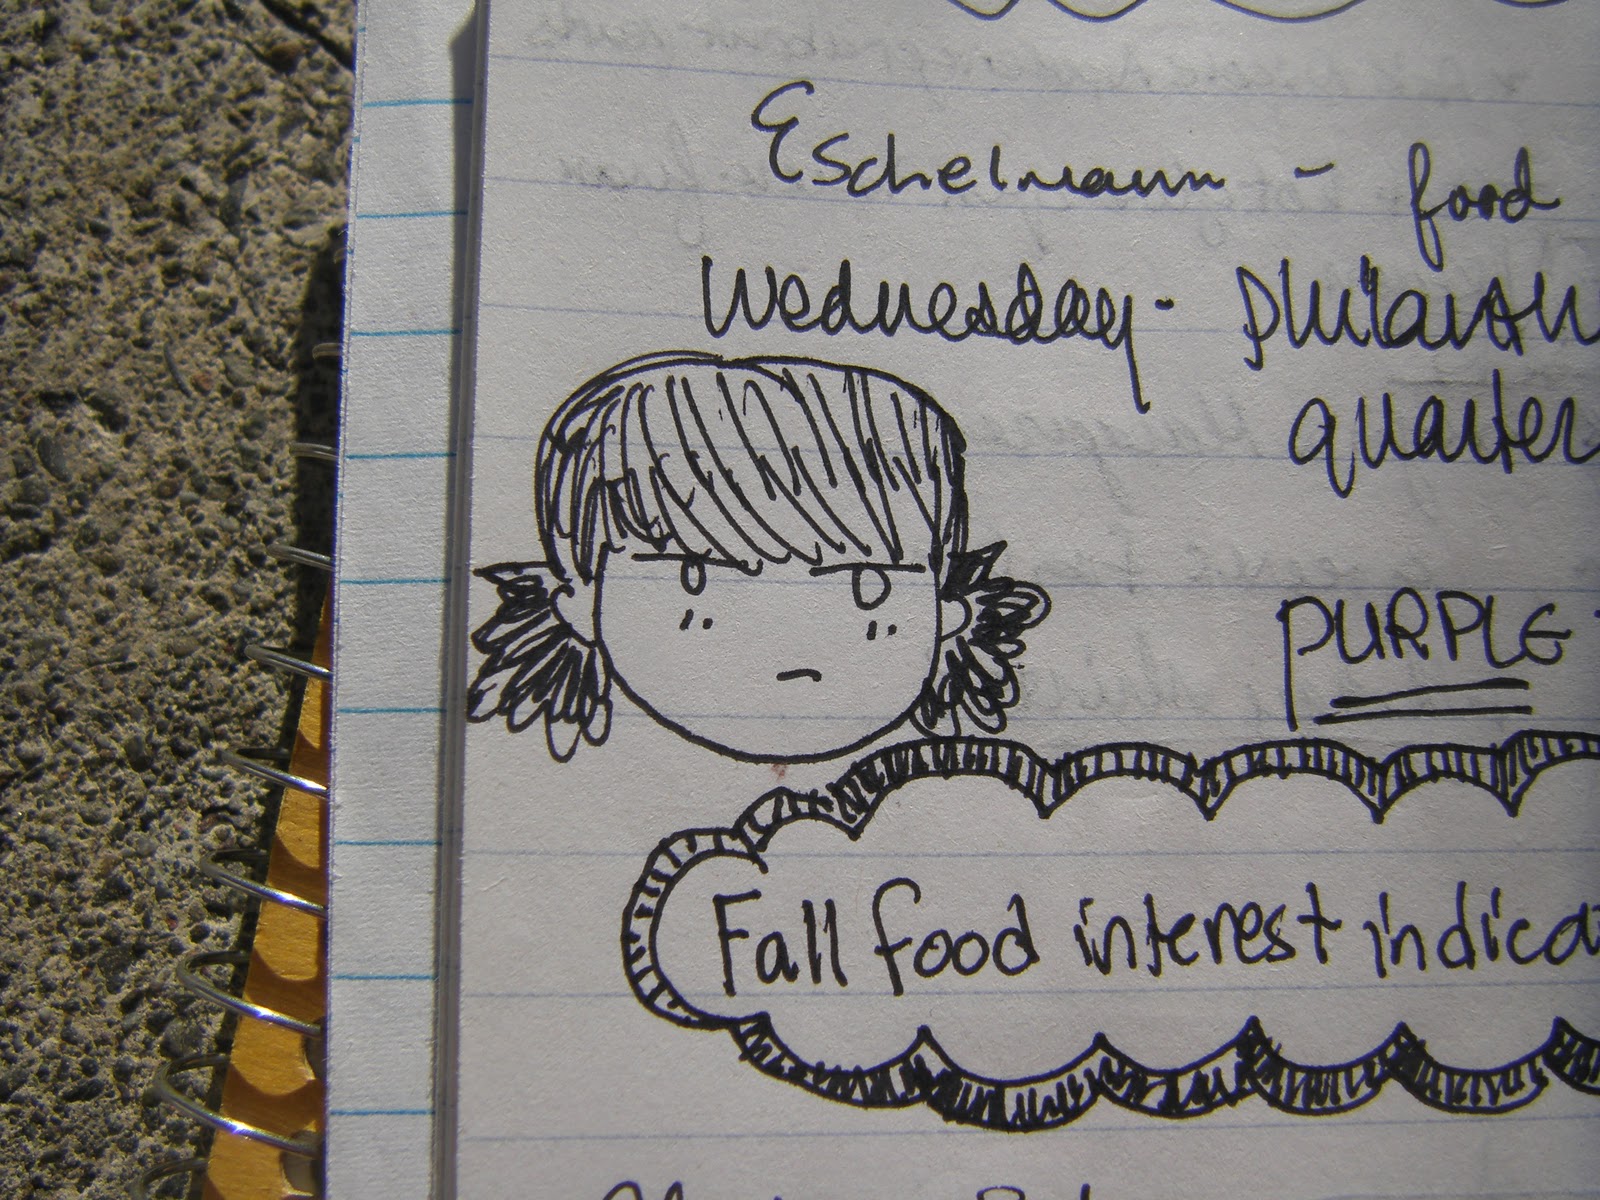 Eschelmann - food
Wednesday - philanth
quarter
PURPLE -
Fall food interest indica